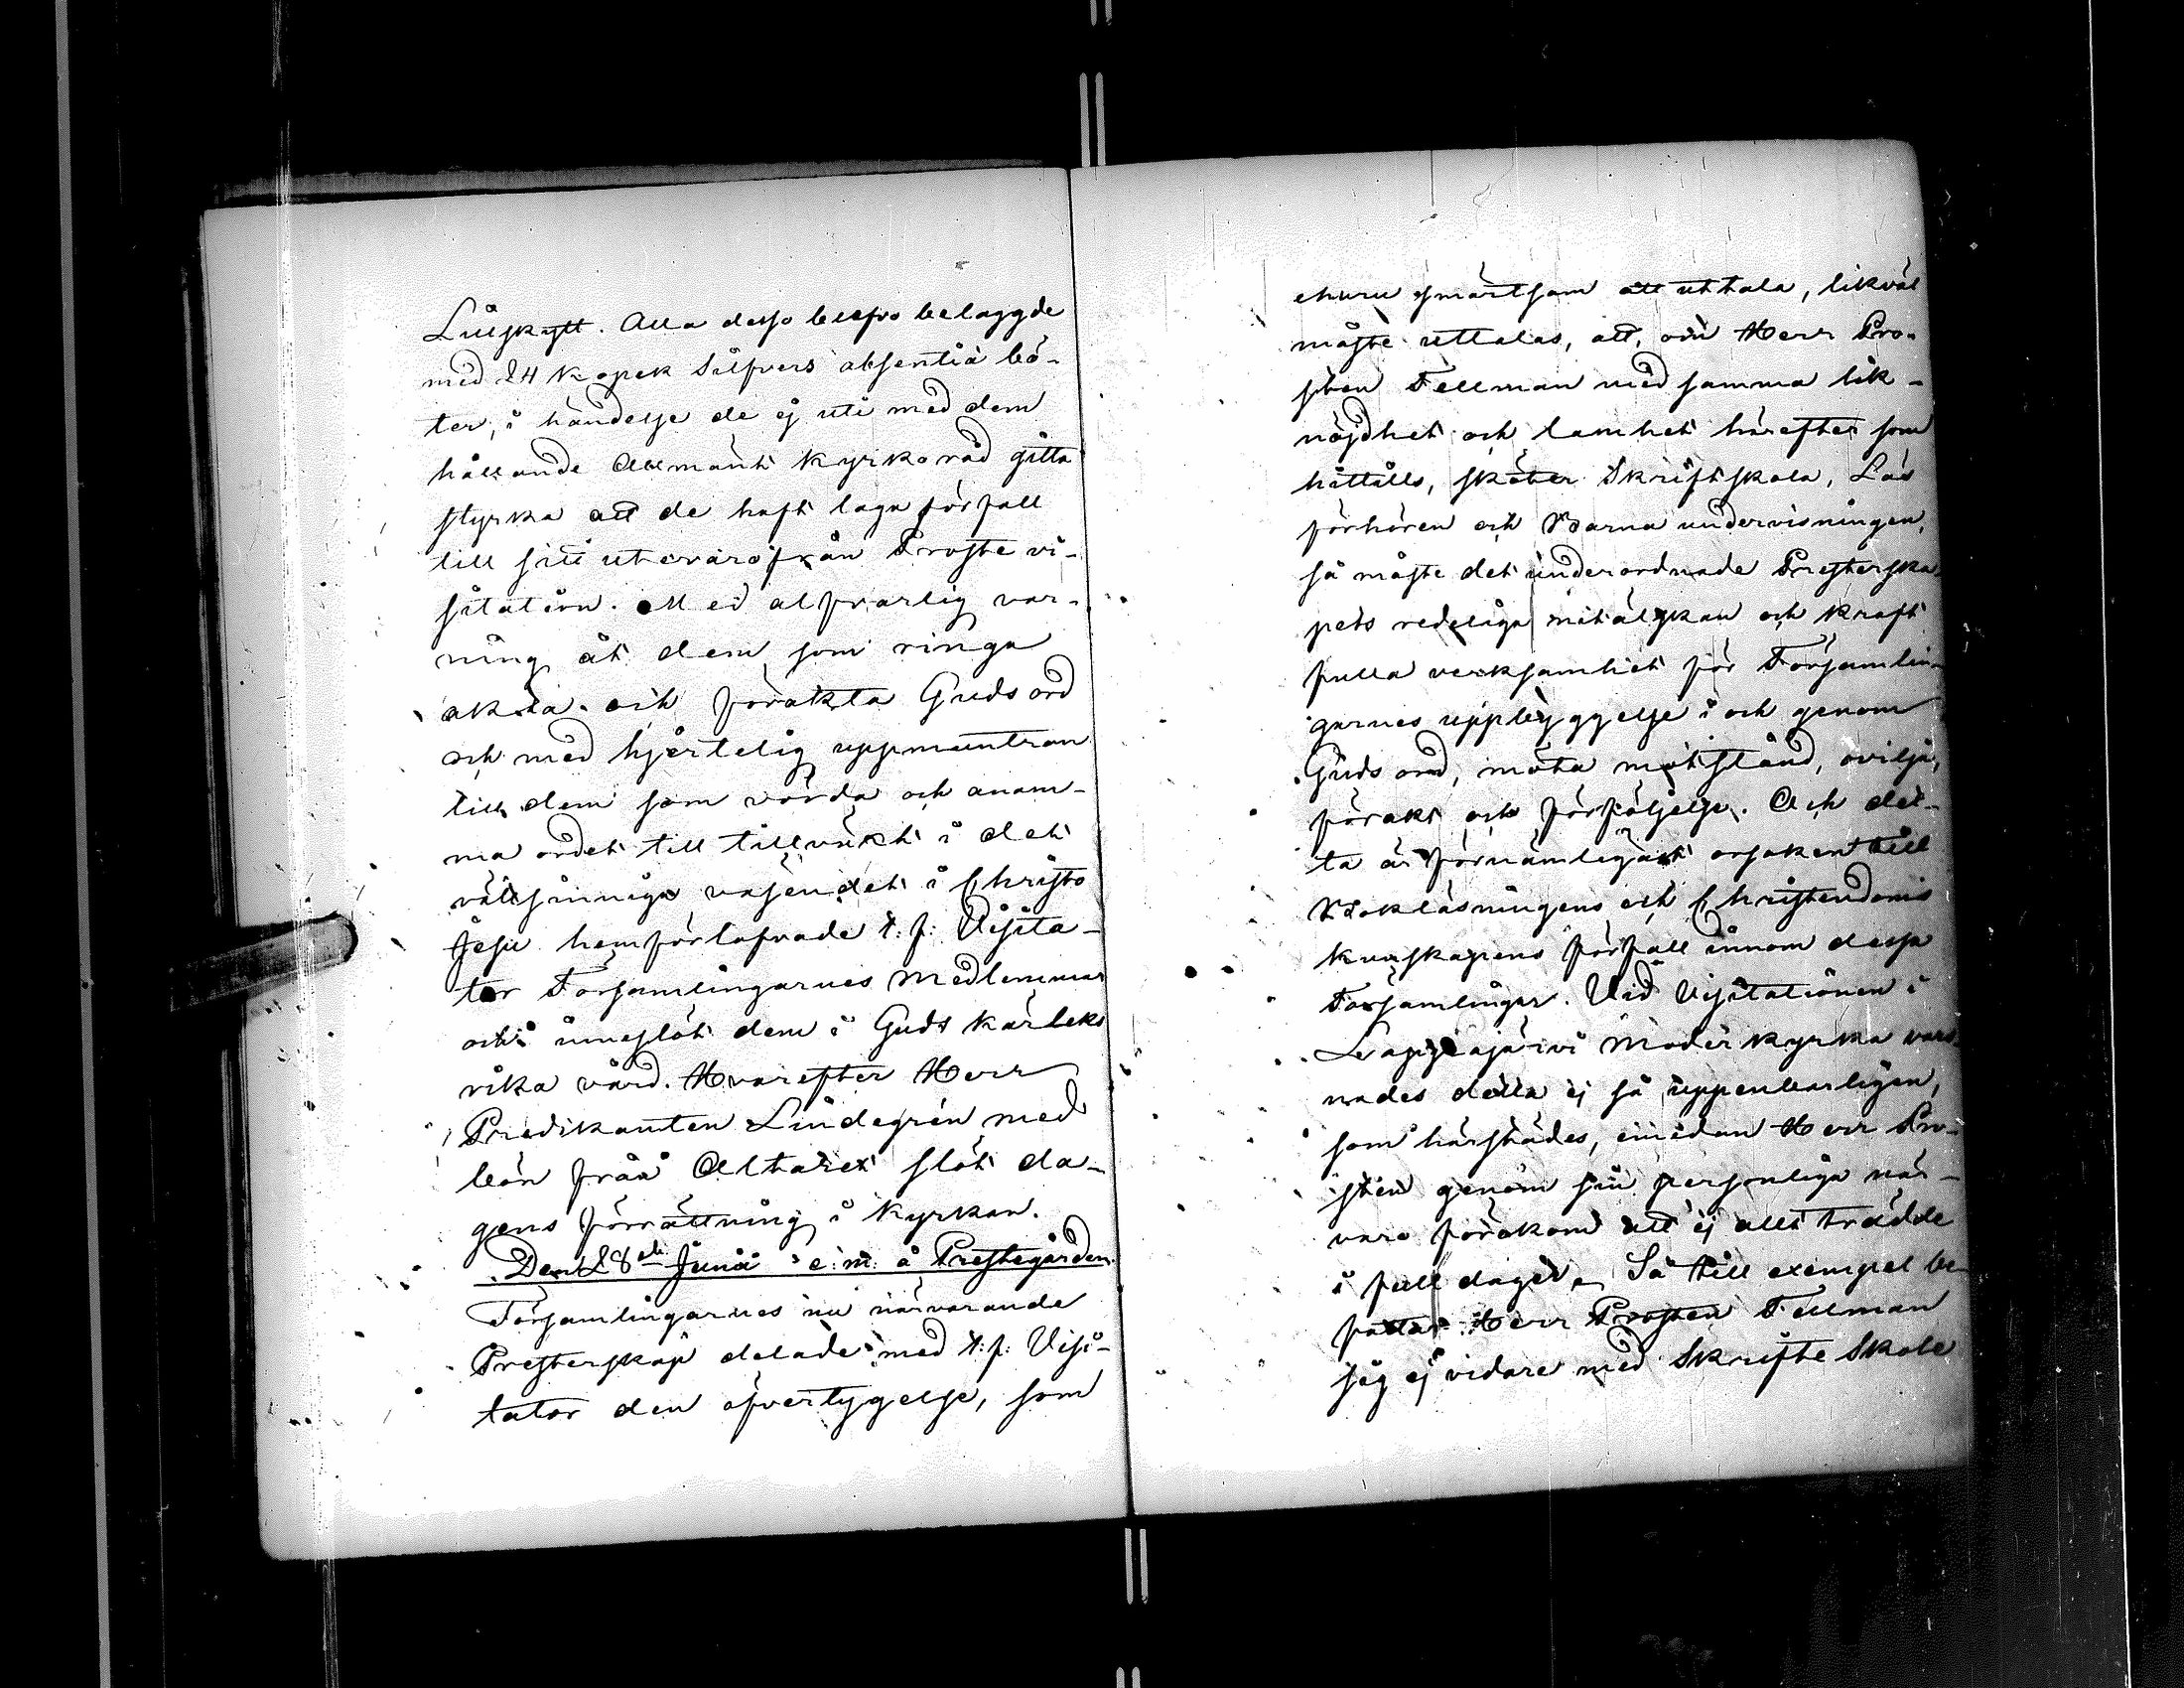 Lillskytt. Alla desse blefvo belaggde
med 24 Kopek Silfvers absentiæ bö-
ter, i händelse de ej uti med dem
hållande Allmänt Kyrkoråd gitta
styrka att de haft laga förfall
till sitt utevaro från Prostevi-
sitation. Med alfvarlig var-
ning åt dem som ringa
akta och förakta Guds ord
och med hjertelig uppmuntran
till dem som vörda och anam-
ma ordet till tillväxt i det
rättsinniga väsendet i Christo
Jesu hemförlofvade t: f: Visita-
tor Församlingarnes Medlemmar
och inneslöt dem i Guds kärleks
rika vård. Hvarefter Herr
Predikanten Lindegrén med
bön från Altaret slöt da-
gens förrättning i Kyrkan.
Den 28de Junii e: m: å Prestegården
Församlingarnes nu närvarande
Presterskap delade med t: f: Visi-
tator den öfvertygelse, som
ehuru smärtsam att uttala, likväl
måste uttalas, att, om Herr Pro-
sten Fellman med samma lik-
nöjdhet och lamhet härefter som
hittills, sköter Skriftskola, Läs
förhören och Barnaundervisningen,
så måste det underordnade Presterska-
pets redeliga nitälskan och kraft
fulla verksamhet för Församlin-
garnes uppbyggelse i och genom
Guds ord, möta motstånd, ovilja,
förakt och förföljelse. Och det-
ta är förnämligast orsaken till
Bokläsningens och Christendoms
kunskapens förfall innom dessa
Församlingar. Vid Visitationen i
Lappajärvi Moderkyrka vars-
nades detta ej så uppenbarligen,
som härstädes, emedan Herr Pro-
sten genom sin personliga när-
varo förekom att ej allt trädde
i full dager. Så till exempel be-
fattar Herr Prosten Fellman
sig ej vidare med Skrifte Skole